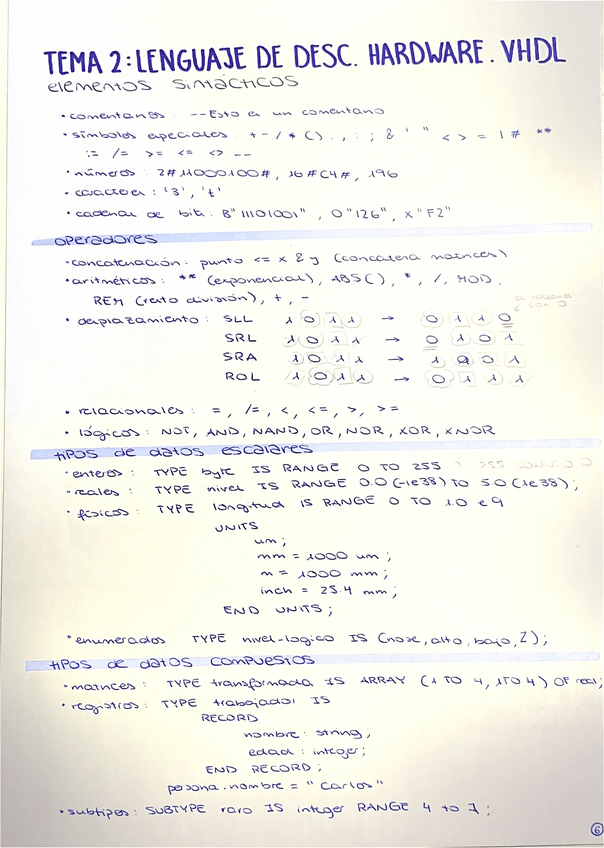 TEMA 2: LENGUAJE DE DESC. HARDWARE. VHDL
elementos sintácticos
· comentarios : --Esto es un comentario
· símbolos especiales : + - / * () . , : ; & ' " < > = | # **
:= /= >= <= <> --
· números : 2#11000100#, 16#C4#, 196
· carácter : '3', 't'
· cadenas de bits : B"11101001", O"126", X"F2"
operadores
· concatenación: punto <= x & y (concatena matrices)
· aritméticos : ** (exponencial), ABS(), *, /, MOD,
REM (resto división), +, -
se rellena con 0
· desplazamiento : SLL 1 0 1 1 → 0 1 1 0
SRL 1 0 1 1 → 0 1 0 1
SRA 1 0 1 1 → 1 0 0 1
ROL 1 0 1 1 → 0 1 1 1
· relacionales : =, /=, <, <=, >, >=
· lógicos : NOT, AND, NAND, OR, NOR, XOR, XNOR
tipos de datos escalares
· enteros : TYPE byte IS RANGE 0 TO 255
· reales : TYPE nivel IS RANGE 0.0 (-1e38) TO 5.0 (1e38);
· físicos : TYPE longitud IS RANGE 0 TO 1.0 e9
UNITS
um;
mm = 1000 um;
m = 1000 mm;
inch = 25.4 mm;
END UNITS;
· enumerados TYPE nivel-logico IS (nose, alto, bajo, Z);
tipos de datos compuestos
· matrices : TYPE transformada IS ARRAY (1 TO 4, 1 TO 4) OF real;
· registros : TYPE trabajador IS
RECORD
nombre : string;
edad : integer;
END RECORD;
persona.nombre = "Carlos"
· subtipos : SUBTYPE raro IS integer RANGE 4 to 7;
6